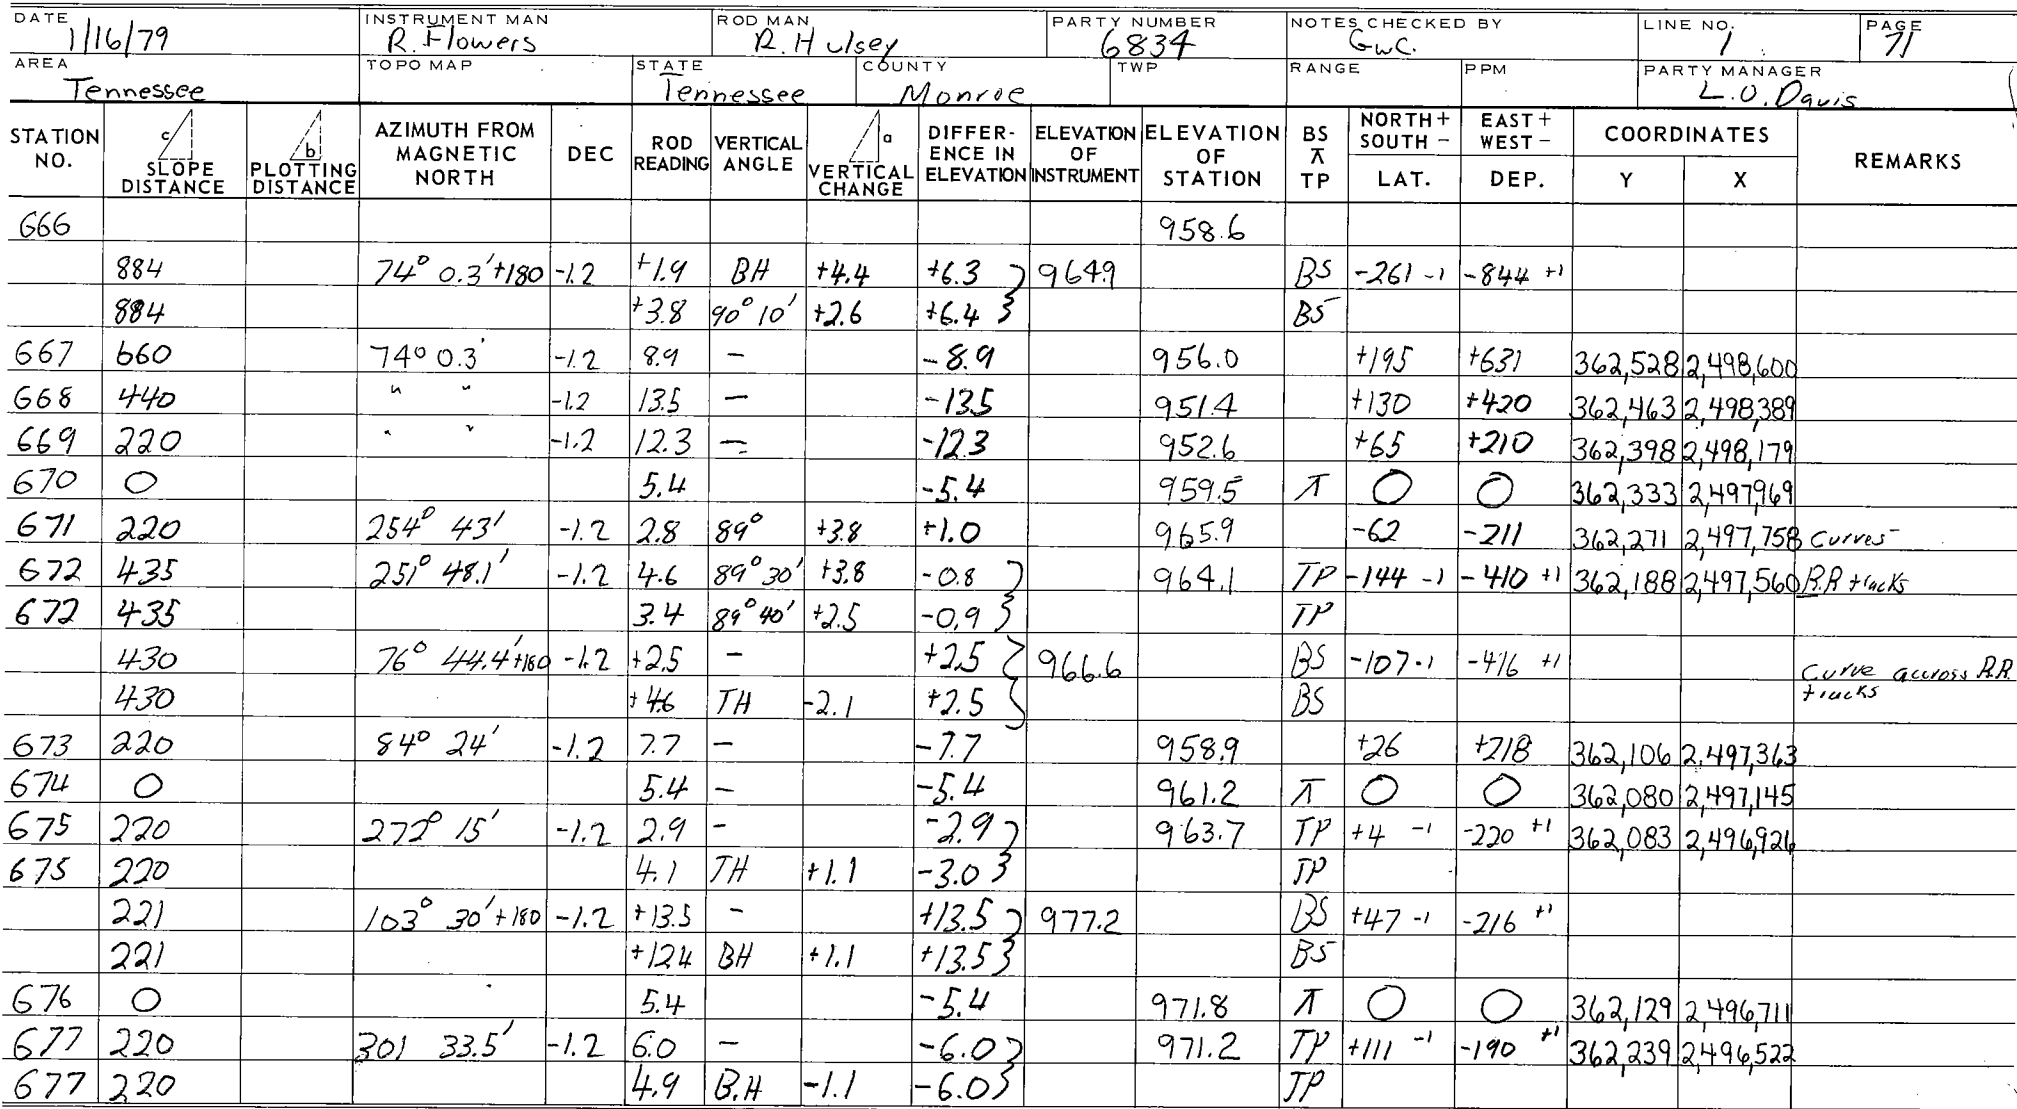 DATE 1/16/79 INSTRUMENT MAN R. Flowers ROD MAN R. Hulsey PARTY NUMBER 6834 NOTES CHECKED BY GWC. LINE NO. 1 PAGE 71
AREA Tennessee TOPO MAP STATE Tennessee COUNTY Monroe TWP RANGE PPM PARTY MANAGER L.O. Davis
STATION NO. c SLOPE DISTANCE b PLOTTING DISTANCE AZIMUTH FROM MAGNETIC NORTH DEC ROD READING VERTICAL ANGLE a VERTICAL CHANGE DIFFERENCE IN ELEVATION ELEVATION OF INSTRUMENT ELEVATION OF STATION BS ⊼ TP NORTH + SOUTH - LAT. EAST + WEST - DEP. COORDINATES Y X REMARKS
666 958.6
884 74° 0.3' +180 -1.2 +1.9 BH +4.4 +6.3 964.9 BS -261 -1 -844 +1
884 +3.8 90° 10' +2.6 +6.4 BS
667 660 74° 0.3' -1.2 8.9 - -8.9 956.0 +195 +631 362,528 2,498,600
668 440 " " -1.2 13.5 - -13.5 951.4 +130 +420 362,463 2,498,389
669 220 " " -1.2 12.3 - -12.3 952.6 +65 +210 362,398 2,498,179
670 0 5.4 -5.4 959.5 ⊼ 0 0 362,333 2,497,969
671 220 254° 43' -1.2 2.8 89° +3.8 +1.0 965.9 -62 -211 362,271 2,497,758 Curves
672 435 251° 48.1' -1.2 4.6 89° 30' +3.8 -0.8 964.1 TP -144 -1 -410 +1 362,188 2,497,560 R.R tracks
672 435 3.4 89° 40' +2.5 -0.9 TP
430 76° 44.4' +180 -1.2 +2.5 - +2.5 966.6 BS -107 -1 -416 +1 Curve accross R.R.
430 +4.6 TH -2.1 +2.5 BS tracks
673 220 84° 24' -1.2 7.7 - -7.7 958.9 +26 +218 362,106 2,497,363
674 0 5.4 - -5.4 961.2 ⊼ 0 0 362,080 2,497,145
675 220 272° 15' -1.2 2.9 - -2.9 963.7 TP +4 -1 -220 +1 362,083 2,496,926
675 220 4.1 TH +1.1 -3.0 TP
221 103° 30' +180 -1.2 +13.5 - +13.5 977.2 BS +47 -1 -216 +1
221 +12.4 BH +1.1 +13.5 BS
676 0 5.4 -5.4 971.8 ⊼ 0 0 362,129 2,496,711
677 220 301 33.5' -1.2 6.0 - -6.0 971.2 TP +111 -1 -190 +1 362,239 2,496,522
677 220 4.9 B.H -1.1 -6.0 TP